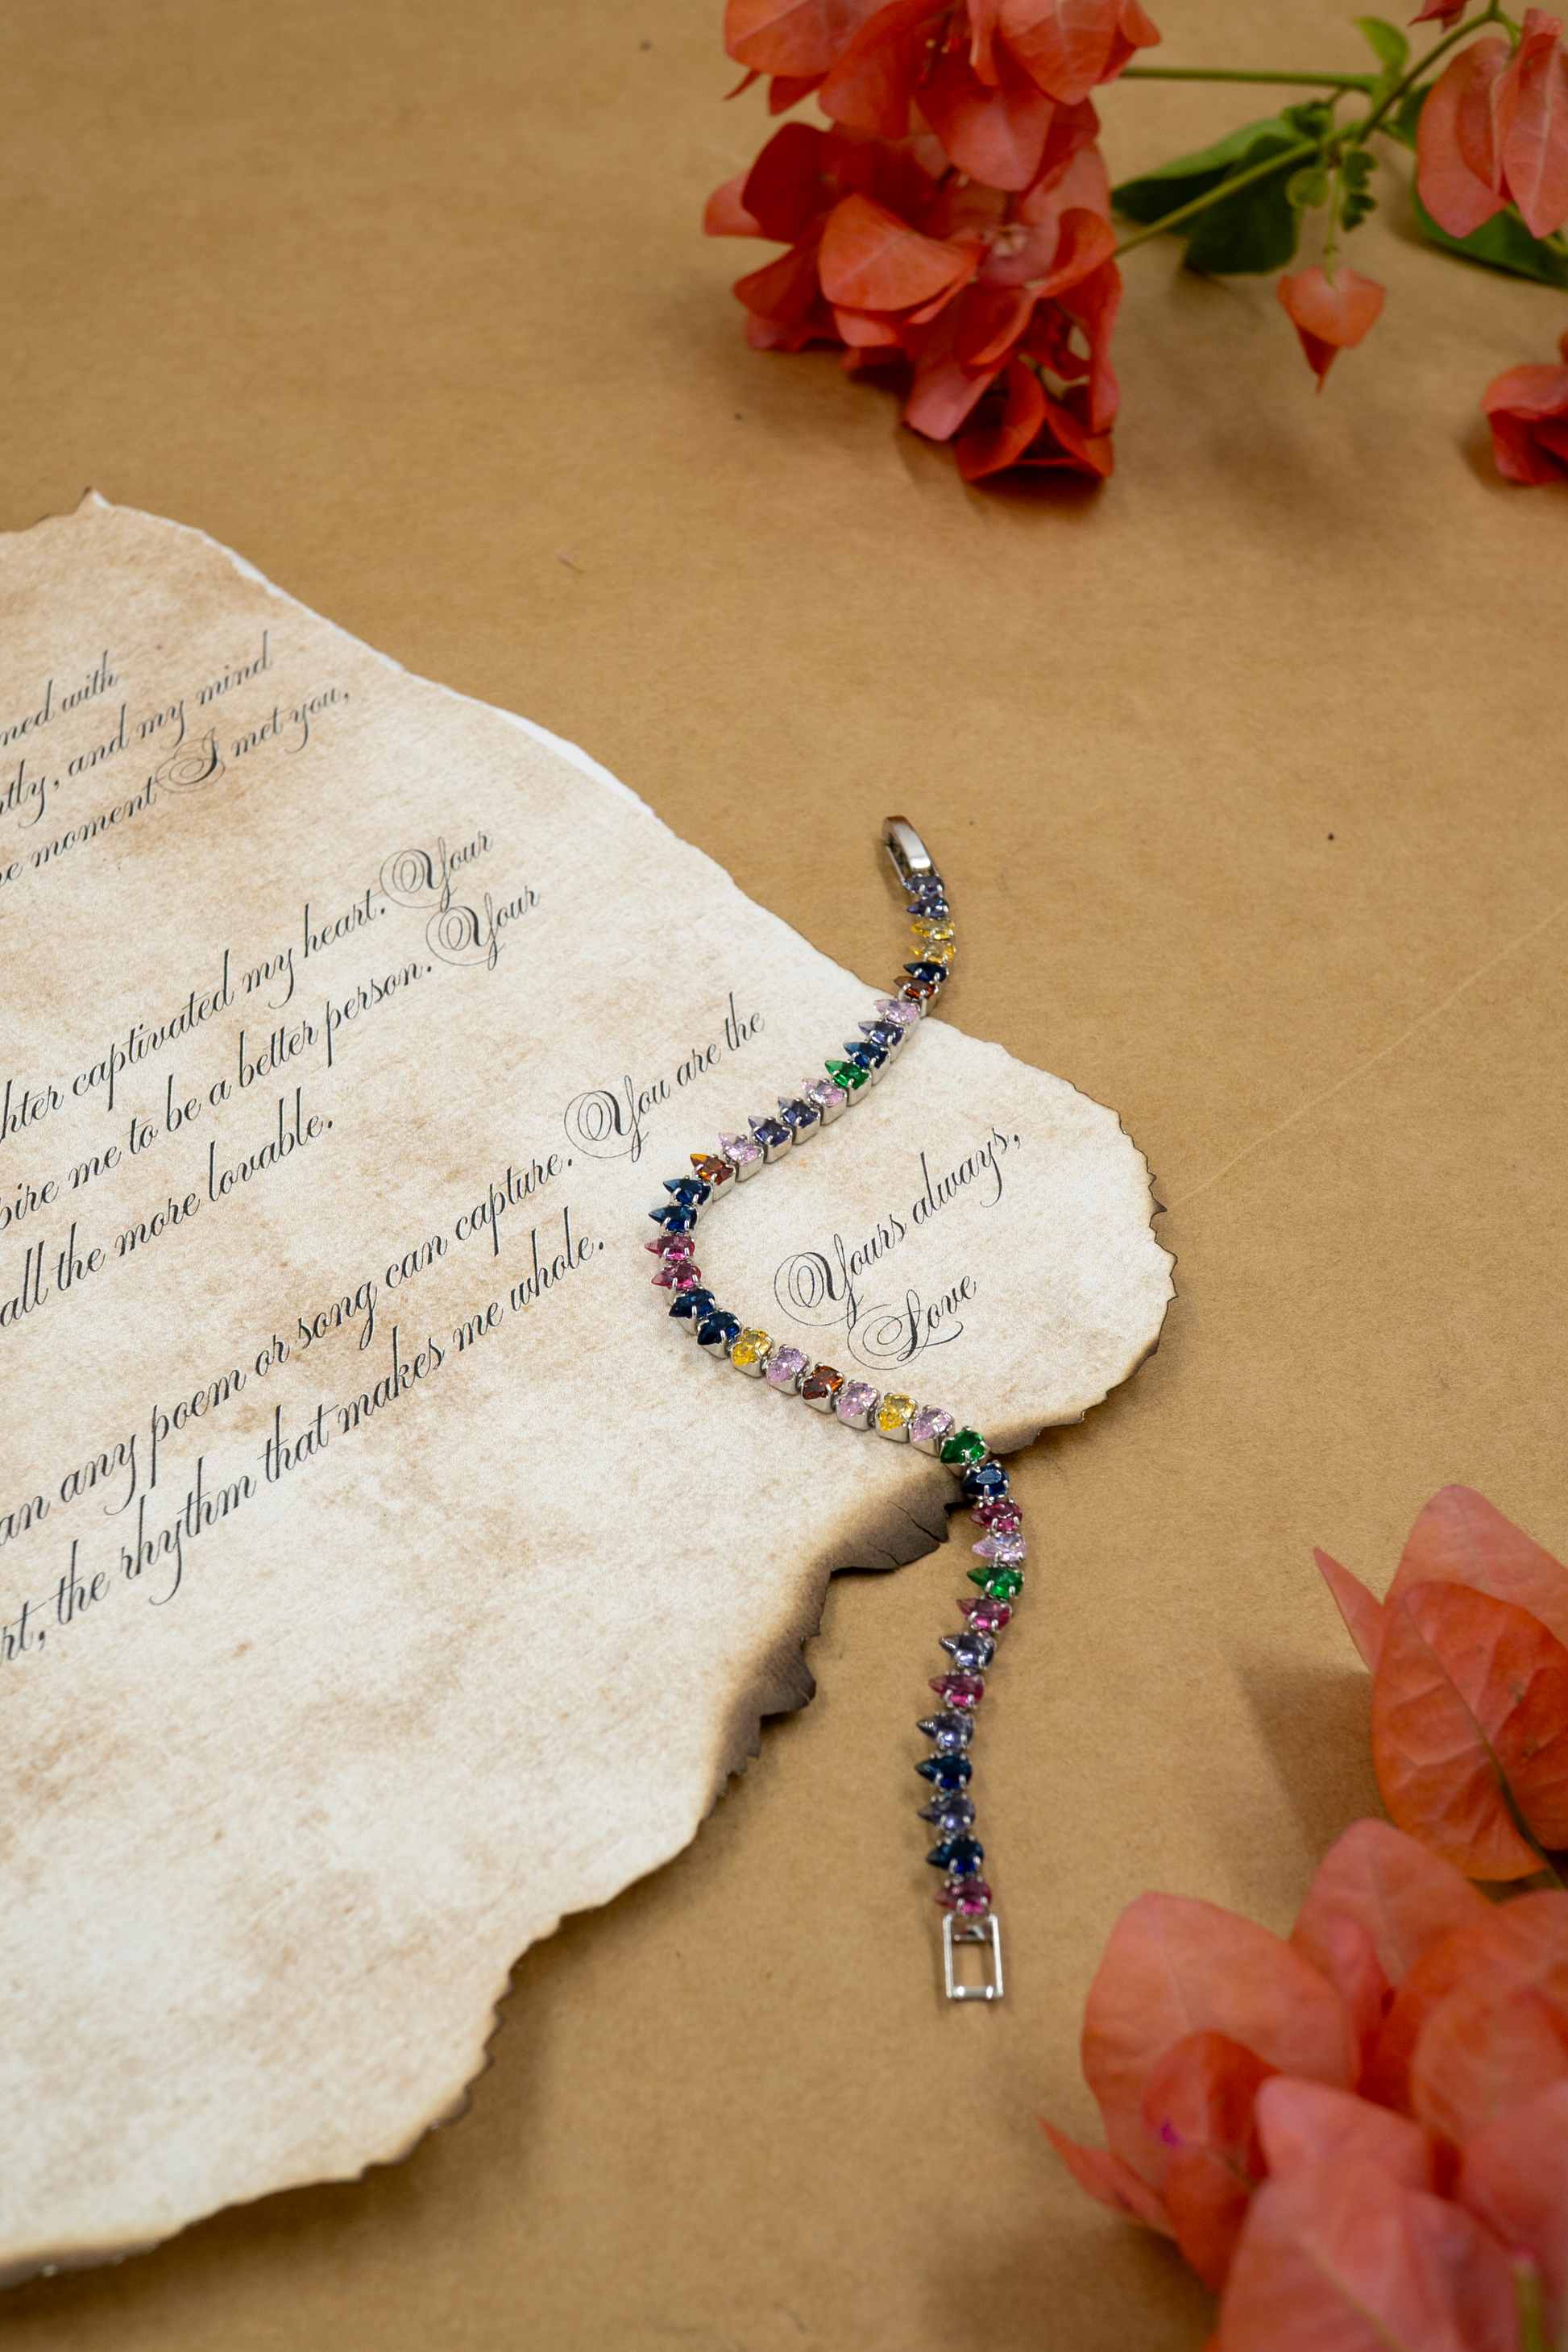 with
and my mind
moment I met you,
captivated my heart. Your
me to be a better person. Your
all the more lovable.
any poem or song can capture. You are the
the rhythm that makes me whole.
Yours always,
Love